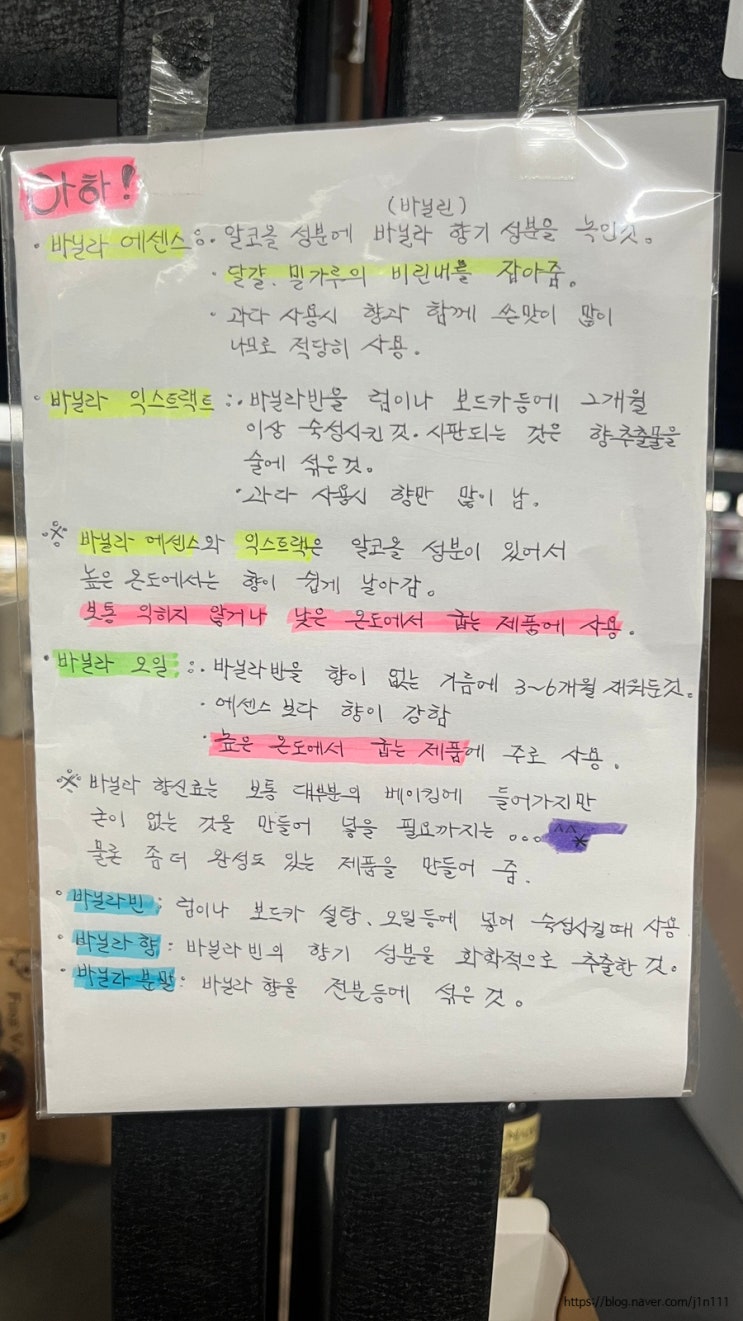 아하!
(바닐린)
· 바닐라 에센스 : · 알코올 성분에 바닐라 향기 성분을 녹인것.
· 달걀, 밀가루의 비린내를 잡아줌.
· 과다 사용시 향과 함께 쓴맛이 많이
나므로 적당히 사용.
· 바닐라 익스트랙트 : · 바닐라반을 럼이나 보드카등에 2개월
이상 숙성시킨 것. 시판되는 것은 향추출물을
술에 섞은것.
· 과다 사용시 향만 많이 남.
※ 바닐라 에센스와 익스트랙은 알코올 성분이 있어서
높은 온도에서는 향이 쉽게 날아감.
보통 익히지 않거나 낮은 온도에서 굽는 제품에 사용.
· 바닐라 오일 : · 바닐라반을 향이 없는 기름에 3~6개월 재워둔것.
· 에센스 보다 향이 강함
· 높은 온도에서 굽는 제품에 주로 사용.
※ 바닐라 향신료는 보통 대부분의 베이킹에 들어가지만
굳이 없는 것을 만들어 넣을 필요까지는 ... ^^*
물론 좀더 완성도 있는 제품을 만들어 줌.
· 바닐라빈 : 럼이나 보드카 설탕, 오일등에 넣어 숙성시킬때 사용
· 바닐라 향 : 바닐라빈의 향기 성분을 화학적으로 추출한 것.
· 바닐라 분말 : 바닐라 향을 전분등에 섞은 것.
https://blog.naver.com/j1n111